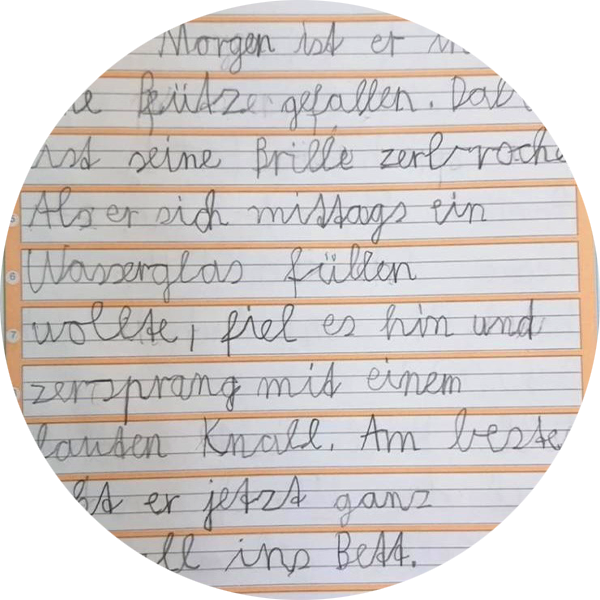 Morgen ist er
Pfütze gefallen.
ist seine Brille
Als er sich mittags ein
6 Wasserglas füllen
7 wollte, fiel es hin und
zersprang mit einem
lauten Knall. Am
er jetzt ganz
ins Bett.